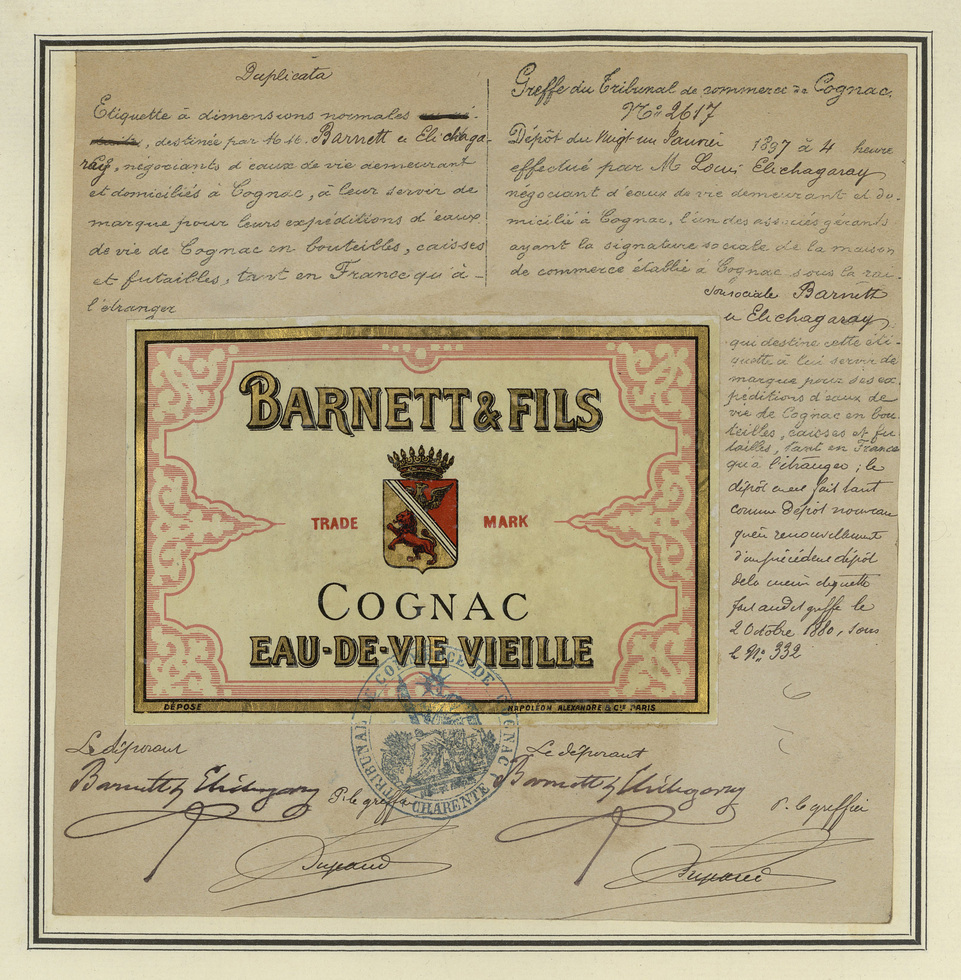 Duplicata
Etiquette à dimensions normales
, destinée par M.M. Barnett et Elichaga-
ray, négociants d'eaux de vie demeurant
et domiciliés à Cognac, à leur servir de
marque pour leurs expéditions d'eaux
de vie de Cognac en bouteilles, caisses
et futailles, tant en France qu'à -
l'étranger
Greffe du Tribunal de commerce de Cognac.
No. 2617
Dépôt du Vingt un Janvier 1897 à 4 heure
effectué par M. Louis Elichagaray
négociant d'eaux de vie demeurant et do-
micilié à Cognac, l'un des associés gérants
ayant la signature sociale de la maison
de commerce établie à Cognac sous la rai-
son sociale Barnett
et Elichagaray
qui destine cette éti-
quette à lui servir de
marque pour ses ex-
péditions d'eaux de
vie de Cognac en bou-
teilles, caisses et fu-
tailles, tant en France
qu'à l'étranger ; le
dépôt en est fait tant
comme dépôt nouveau
qu'en renouvellement
d'un précédent dépôt
de la même étiquette
fait audit greffe le
2 Octobre 1880, sous
le No. 332
BARNETT & FILS
TRADE MARK
COGNAC
EAU-DE-VIE VIEILLE
DÉPOSÉ
NAPOLÉON ALEXANDRE & Cie PARIS
TRIBUNAL DE COMMERCE DE COGNAC
CHARENTE
Le déposant
Barnett & Elichagaray
P. le greffier
Le déposant
Barnett & Elichagaray
P. le greffier